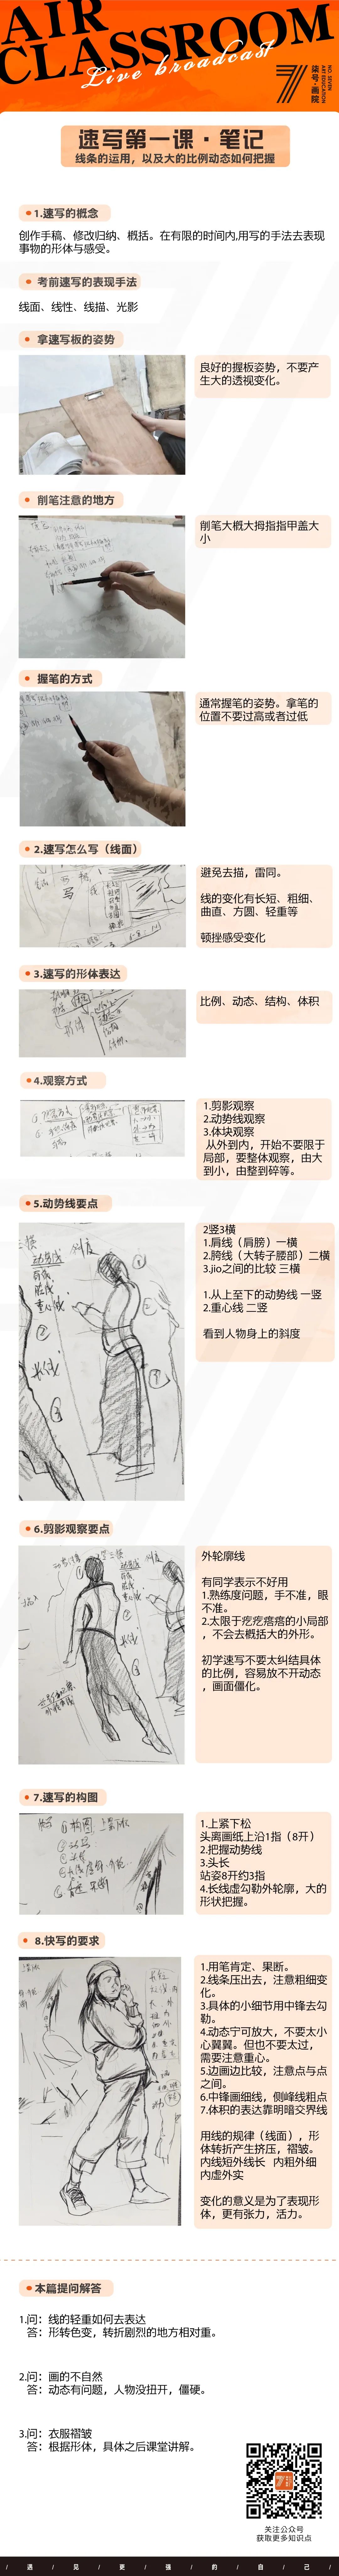 AIR
CLASSROOM
Live broadcast
柒号·画院
NO. SEVEN
ART EDUCATION
速写第一课·笔记
线条的运用，以及大的比例动态如何把握
1.速写的概念
创作手稿、修改归纳、概括。在有限的时间内,用写的手法去表现
事物的形体与感受。
考前速写的表现手法
线面、线性、线描、光影
拿速写板的姿势
良好的握板姿势，不要产
生大的透视变化。
削笔注意的地方
削笔大概大拇指指甲盖大
小
握笔的方式
通常握笔的姿势。拿笔的
位置不要过高或者过低
2.速写怎么写（线面）
避免去描，雷同。
线的变化有长短、粗细、
曲直、方圆、轻重等
顿挫感受变化
3.速写的形体表达
比例、动态、结构、体积
4.观察方式
1.剪影观察
2.动势线观察
3.体块观察
从外到内，开始不要限于
局部，要整体观察，由大
到小，由整到碎等。
5.动势线要点
2竖3横
1.肩线（肩膀）一横
2.胯线（大转子腰部）二横
3.jio之间的比较 三横
1.从上至下的动势线 一竖
2.重心线 二竖
看到人物身上的斜度
动势线
重心线
6.剪影观察要点
外轮廓线
有同学表示不好用
1.熟练度问题，手不准，眼
不准。
2.太限于疙疙瘩瘩的小局部
，不会去概括大的外形。
初学速写不要太纠结具体
的比例，容易放不开动态
，画面僵化。
7.速写的构图
1.上紧下松
头离画纸上沿1指（8开）
2.把握动势线
3.头长
站姿8开约3指
4.长线虚勾勒外轮廓，大的
形状把握。
8.快写的要求
1.用笔肯定、果断。
2.线条压出去，注意粗细变
化。
3.具体的小细节用中锋去勾
勒。
4.动态宁可放大，不要太小
心翼翼。但也不要太过，
需要注意重心。
5.边画边比较，注意点与点
之间。
6.中锋画细线，侧峰线粗点
7.体积的表达靠明暗交界线
用线的规律（线面），形
体转折产生挤压，褶皱。
内线短外线长 内粗外细
内虚外实
变化的意义是为了表现形
体，更有张力，活力。
本篇提问解答
1.问：线的轻重如何去表达
答：形转色变，转折剧烈的地方相对重。
2.问：画的不自然
答：动态有问题，人物没扭开，僵硬。
3.问：衣服褶皱
答：根据形体，具体之后课堂讲解。
关注公众号
获取更多知识点
/ 遇 / 见 / 更 / 强 / 的 / 自 / 己 /